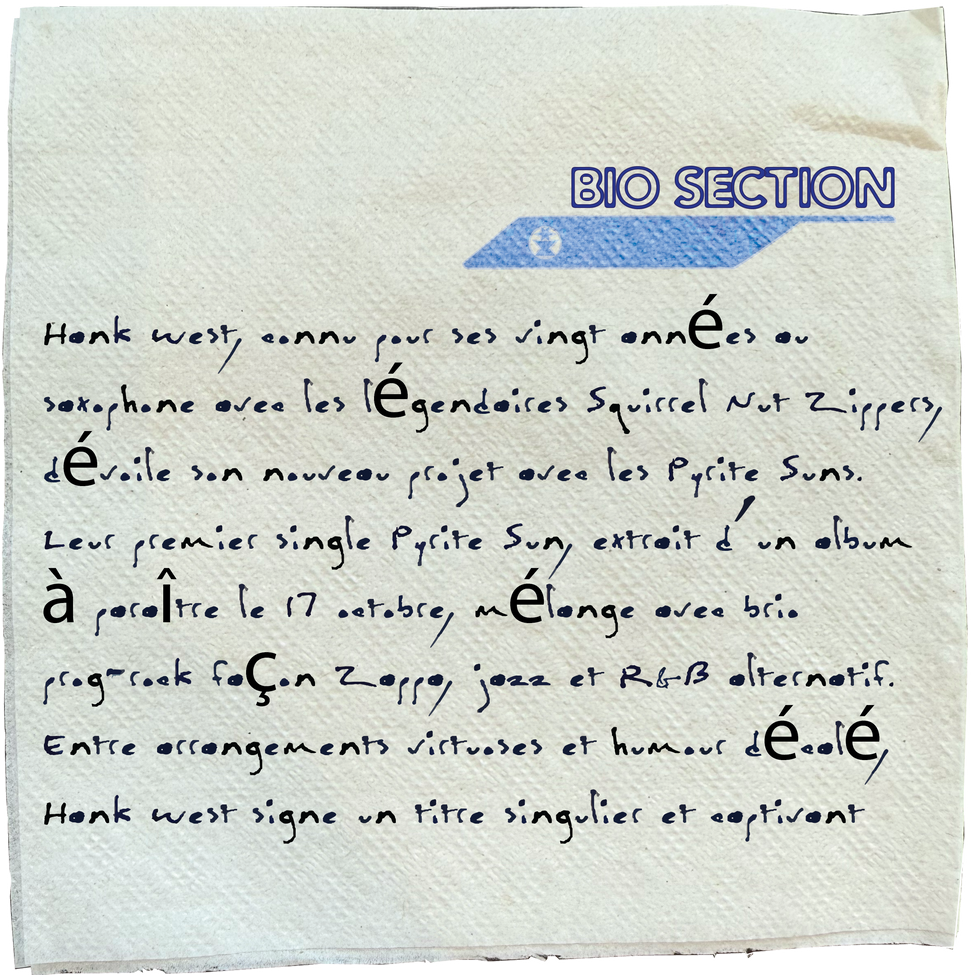 BIO SECTION
Hank West, connu pour ses vingt années au
saxophone avec les légendaires Squirrel Nut Zippers,
dévoile son nouveau projet avec les Pyrite Suns.
Leur premier single Pyrite Sun, extrait d'un album
à paraître le 17 octobre, mélange avec brio
prog-rock façon Zappa, jazz et R&B alternatif.
Entre arrangements virtuoses et humour décalé,
Hank West signe un titre singulier et captivant